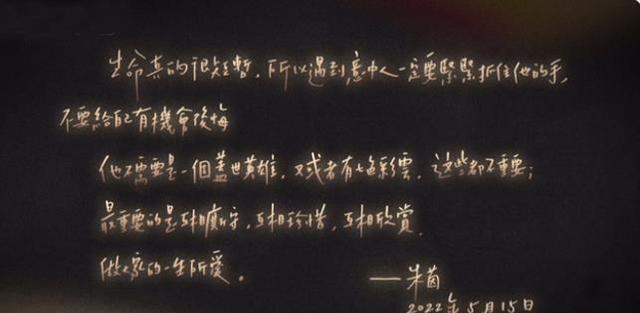 生命真的很短暫，所以遇到意中人一定要緊緊抓住他的手，
不要給自己有機會後悔
他不需要是一個蓋世英雄，或者有七色彩雲，這些都不重要；
最重要的是互相廝守，互相珍惜，互相欣賞，
做大家的一生所愛。
——朱茵
2022年5月15日